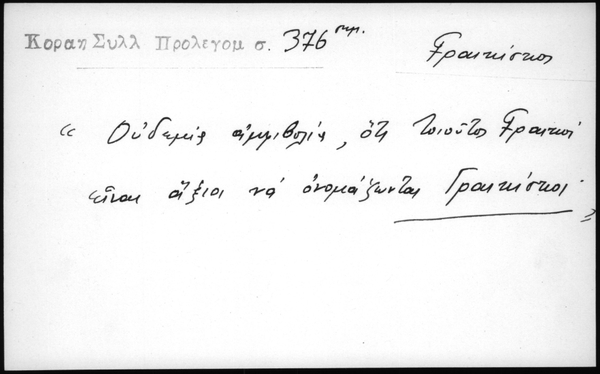 Κοραη Συλλ Προλεγομ σ. 376 σημ.
Γραικίσκος
« Οὐδεμία ἀμφιβολία, ὅτι τοιοῦτοι Γραικοί
εἶναι ἄξιοι νά ὀνομάζωνται Γραικίσκοι »